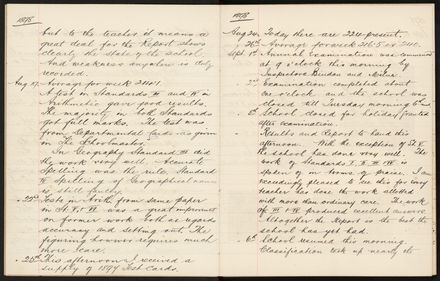 1898
but to the teacher it means a
great deal for the Report shows
clearly the state of the school
And weakness anywhere is truly
recorded.
Aug 19. Average for week 240.1
A test in Standards III and IV in
Arithmetic gave good results.
The majority in both Standards
got full marks. The test was
from Departmental Cards as given
in The Schoolmaster.
In Geography Standard III did
the work very well. Accurate
Spelling was the rule. Standard
Spelling of Geographical names
is still faulty.
Tests in Arith. from same paper
in St V. & VI was a great improvement
on former work both as regards
accuracy and setting out. The
figuring however requires much
more care.
25th This afternoon I received a
supply of 1897 Test Cards.
1898
Aug 24. Today there are 224 present.
26th Average for week 216.5 ex 240.
Sept. 1st Annual Examination was commenced
at 9 o'clock this morning by
Inspectors and
2nd Examination completed about
o'clock and the school was
closed till Tuesday morning
5th School closed for holiday granted
after examination
Results and Report to hand this
afternoon. With the exception of St V
the school has done very well. The
work of Standards I. II. III. IV is
spoken of in terms of praise. I am
exceedingly pleased to see this for every
teacher has done the work allotted
with more than ordinary care. The work
of III & IV produced excellent answers.
Altogether the Report is the best the
school has yet had.
6th School resumed this morning
Classification took up nearly the